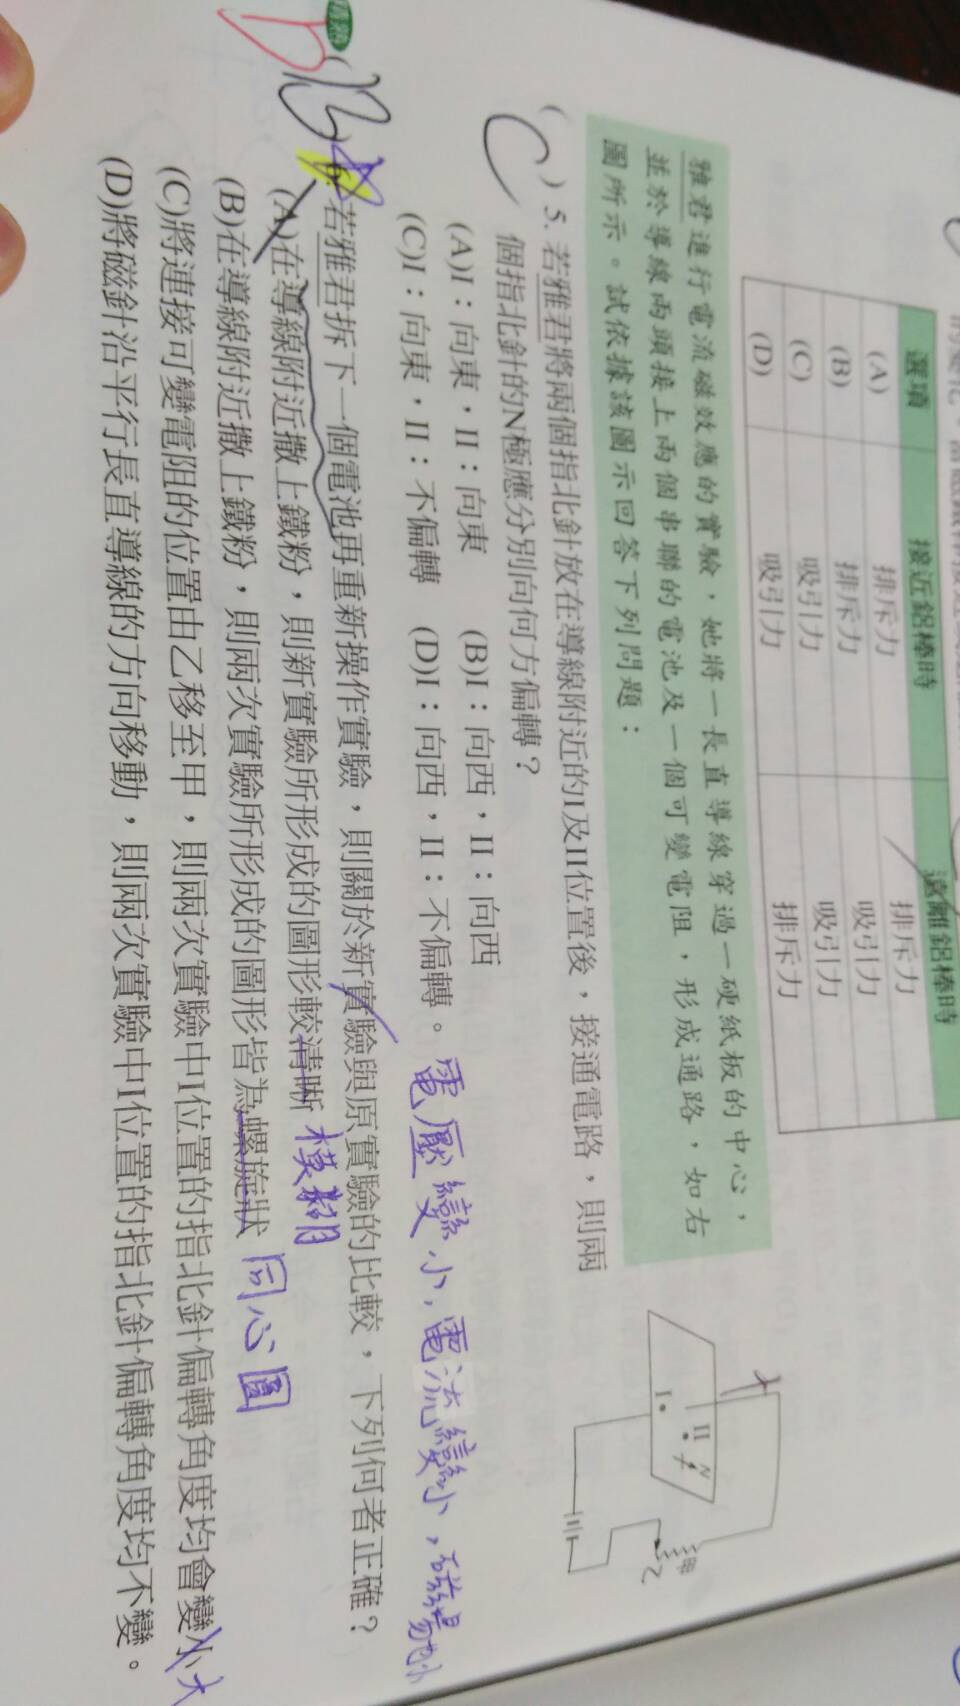 選項 接近鋁棒時 遠離鋁棒時
(A) 排斥力 排斥力
(B) 排斥力 吸引力
(C) 吸引力 吸引力
(D) 吸引力 排斥力
雅君進行電流磁效應的實驗,她將一長直導線穿過一硬紙板的中心,
並於導線兩頭接上兩個串聯的電池及一個可變電阻,形成通路,如右
圖所示。試依據該圖示回答下列問題:
I
II
N
甲
乙
( C ) 5. 若雅君將兩個指北針放在導線附近的I及II位置後,接通電路,則兩
個指北針的N極應分別向何方偏轉?
(A)I:向東,II:向東 (B)I:向西,II:向西
(C)I:向東,II:不偏轉 (D)I:向西,II:不偏轉。
電壓變小,電流變小,磁場也小
D
( B 6. 若雅君拆下一個電池再重新操作實驗,則關於新實驗與原實驗的比較,下列何者正確?
(A)在導線附近撒上鐵粉,則新實驗所形成的圖形較清晰 模糊
(B)在導線附近撒上鐵粉,則兩次實驗所形成的圖形皆為螺旋狀 同心圓
(C)將連接可變電阻的位置由乙移至甲,則兩次實驗中I位置的指北針偏轉角度均會變小 大
(D)將磁針沿平行長直導線的方向移動,則兩次實驗中I位置的指北針偏轉角度均不變。